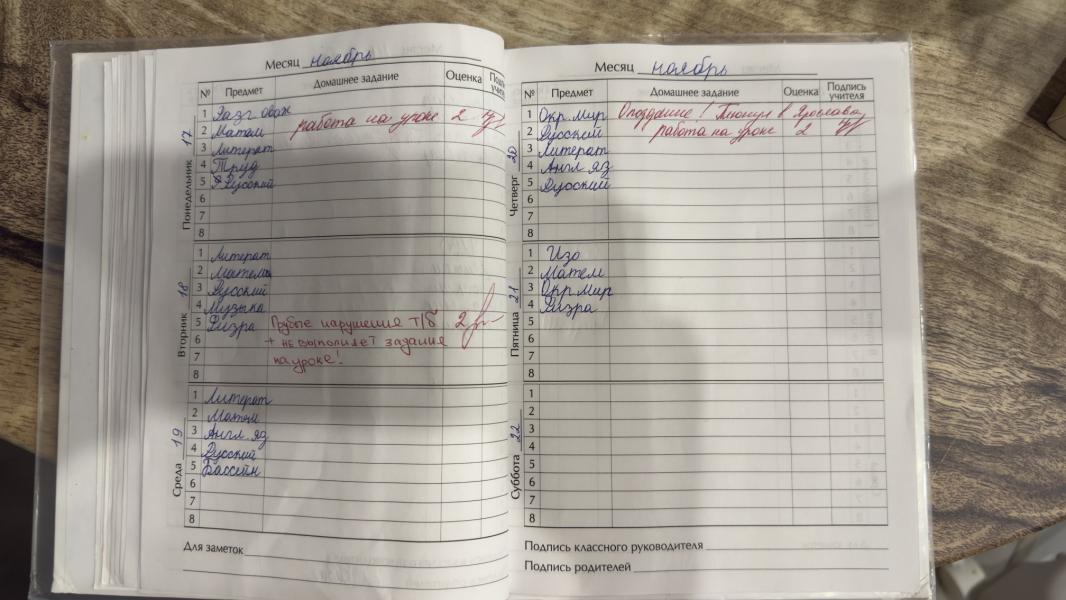 Месяц ноябрь
№ Предмет Домашнее задание Оценка
Понедельник 17
1 Разг овож
2 Матем работа на уроке 2
3 Литерат
4 Труд
5 Русский
6
7
8
Вторник 18
1 Литерат
2 Матем
3 Русский
4 Музыка
5 Физра Грубые нарушения т/б 2
6 + не выполняет задания
7 на уроке!
8
Среда 19
1 Литерат
2 Матем
3 Англ. яз
4 Русский
5 Бассейн
6
7
8
Для заметок
Месяц ноябрь
№ Предмет Домашнее задание Оценка Подпись учителя
Четверг 20
1 Окр. мир Опоздание! в Ярослава,
2 Русский работа на уроке 2
3 Литерат
4 Англ яз
5 Русский
6
7
8
Пятница 21
1 Изо
2 Матем
3 Окр мир
4 Физра
5
6
7
8
Суббота 22
1
2
3
4
5
6
7
8
Подпись классного руководителя
Подпись родителей